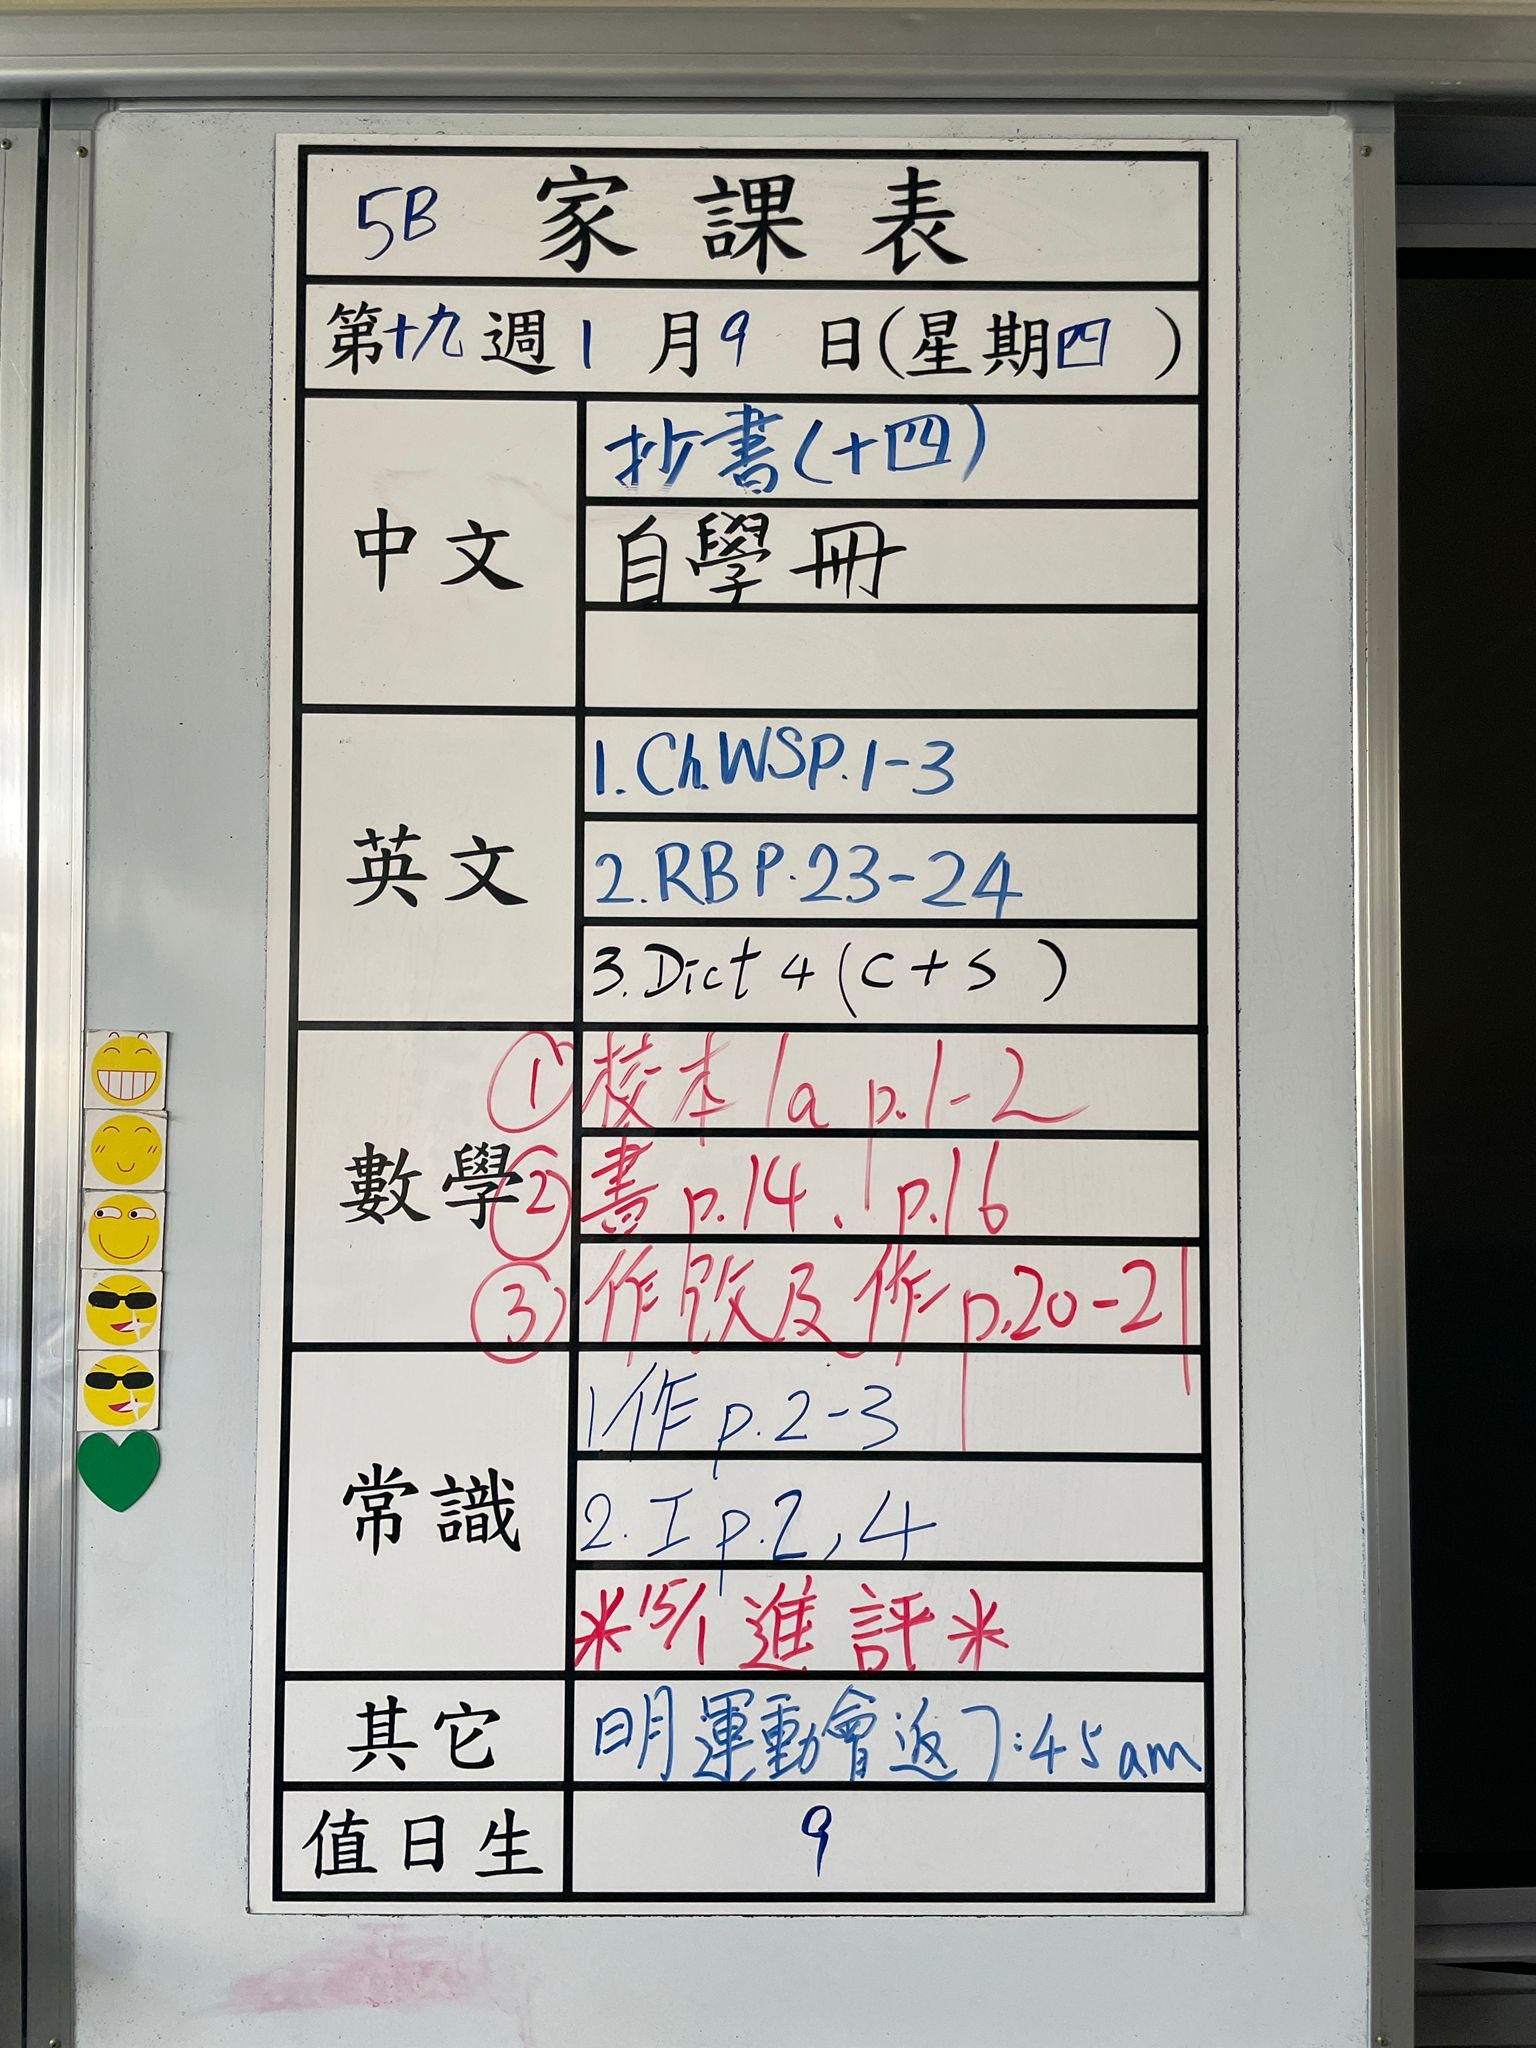 5B 家課表
第十九週 1 月 9 日(星期四)
中文
抄書(十四)
自學冊
英文
1. Ch.WS P.1-3
2. RB P.23-24
3. Dict 4 (C+S)
數學
① 校本 1a p.1-2
② 書 p.14、p.16
③ 作改及作 p.20-21
常識
1. 作 p.2-3
2. I p.2, 4
*15/1 進評*
其它
明運動會返7:45am
值日生
9